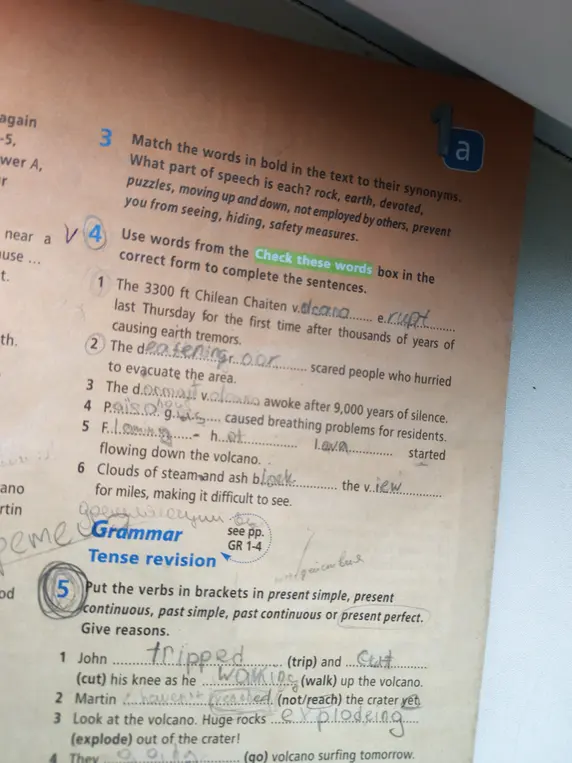 again
-5,
wer A,
r
near a
use ...
t.
th.
ano
rtin
od
1a
3 Match the words in bold in the text to their synonyms.
What part of speech is each? rock, earth, devoted,
puzzles, moving up and down, not employed by others, prevent
you from seeing, hiding, safety measures.
V 4 Use words from the Check these words box in the
correct form to complete the sentences.
1 The 3300 ft Chilean Chaiten v.olcano...... e.rupt......
last Thursday for the first time after thousands of years of
causing earth tremors.
2 The deafening r.oar............ scared people who hurried
to evacuate the area.
3 The d.ormant v.olcano awoke after 9,000 years of silence.
4 P........ g........ caused breathing problems for residents.
5 F.laming...- h..ot............ lava............ started
flowing down the volcano.
6 Clouds of steam and ash block............ the v..iew............
for miles, making it difficult to see.
Grammar see pp.
Tense revision GR 1-4
5 Put the verbs in brackets in present simple, present
continuous, past simple, past continuous or present perfect.
Give reasons.
1 John ......tripped...... (trip) and ...cut......
(cut) his knee as he ..woking (walk) up the volcano.
2 Martin ............ (not/reach) the crater yet.
3 Look at the volcano. Huge rocks ...explodeing...
(explode) out of the crater!
4 They ...going... (go) volcano surfing tomorrow.